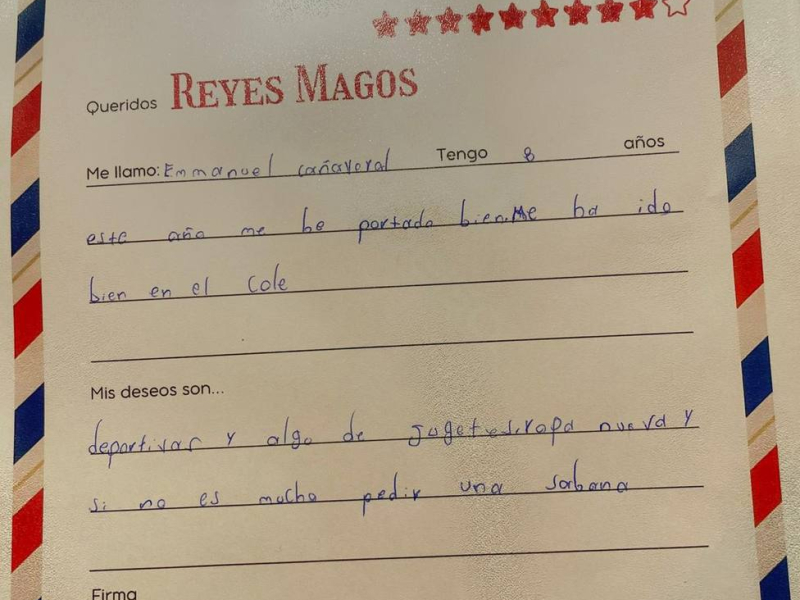 Queridos REYES MAGOS
Me llamo: Emmanuel cañaveral Tengo 8 años
este año me he portado bien.Me ha ido
bien en el Cole
Mis deseos son...
deportivas y algo de jugetes,ropa nueva y
si no es mucho pedir una sabana
Firma